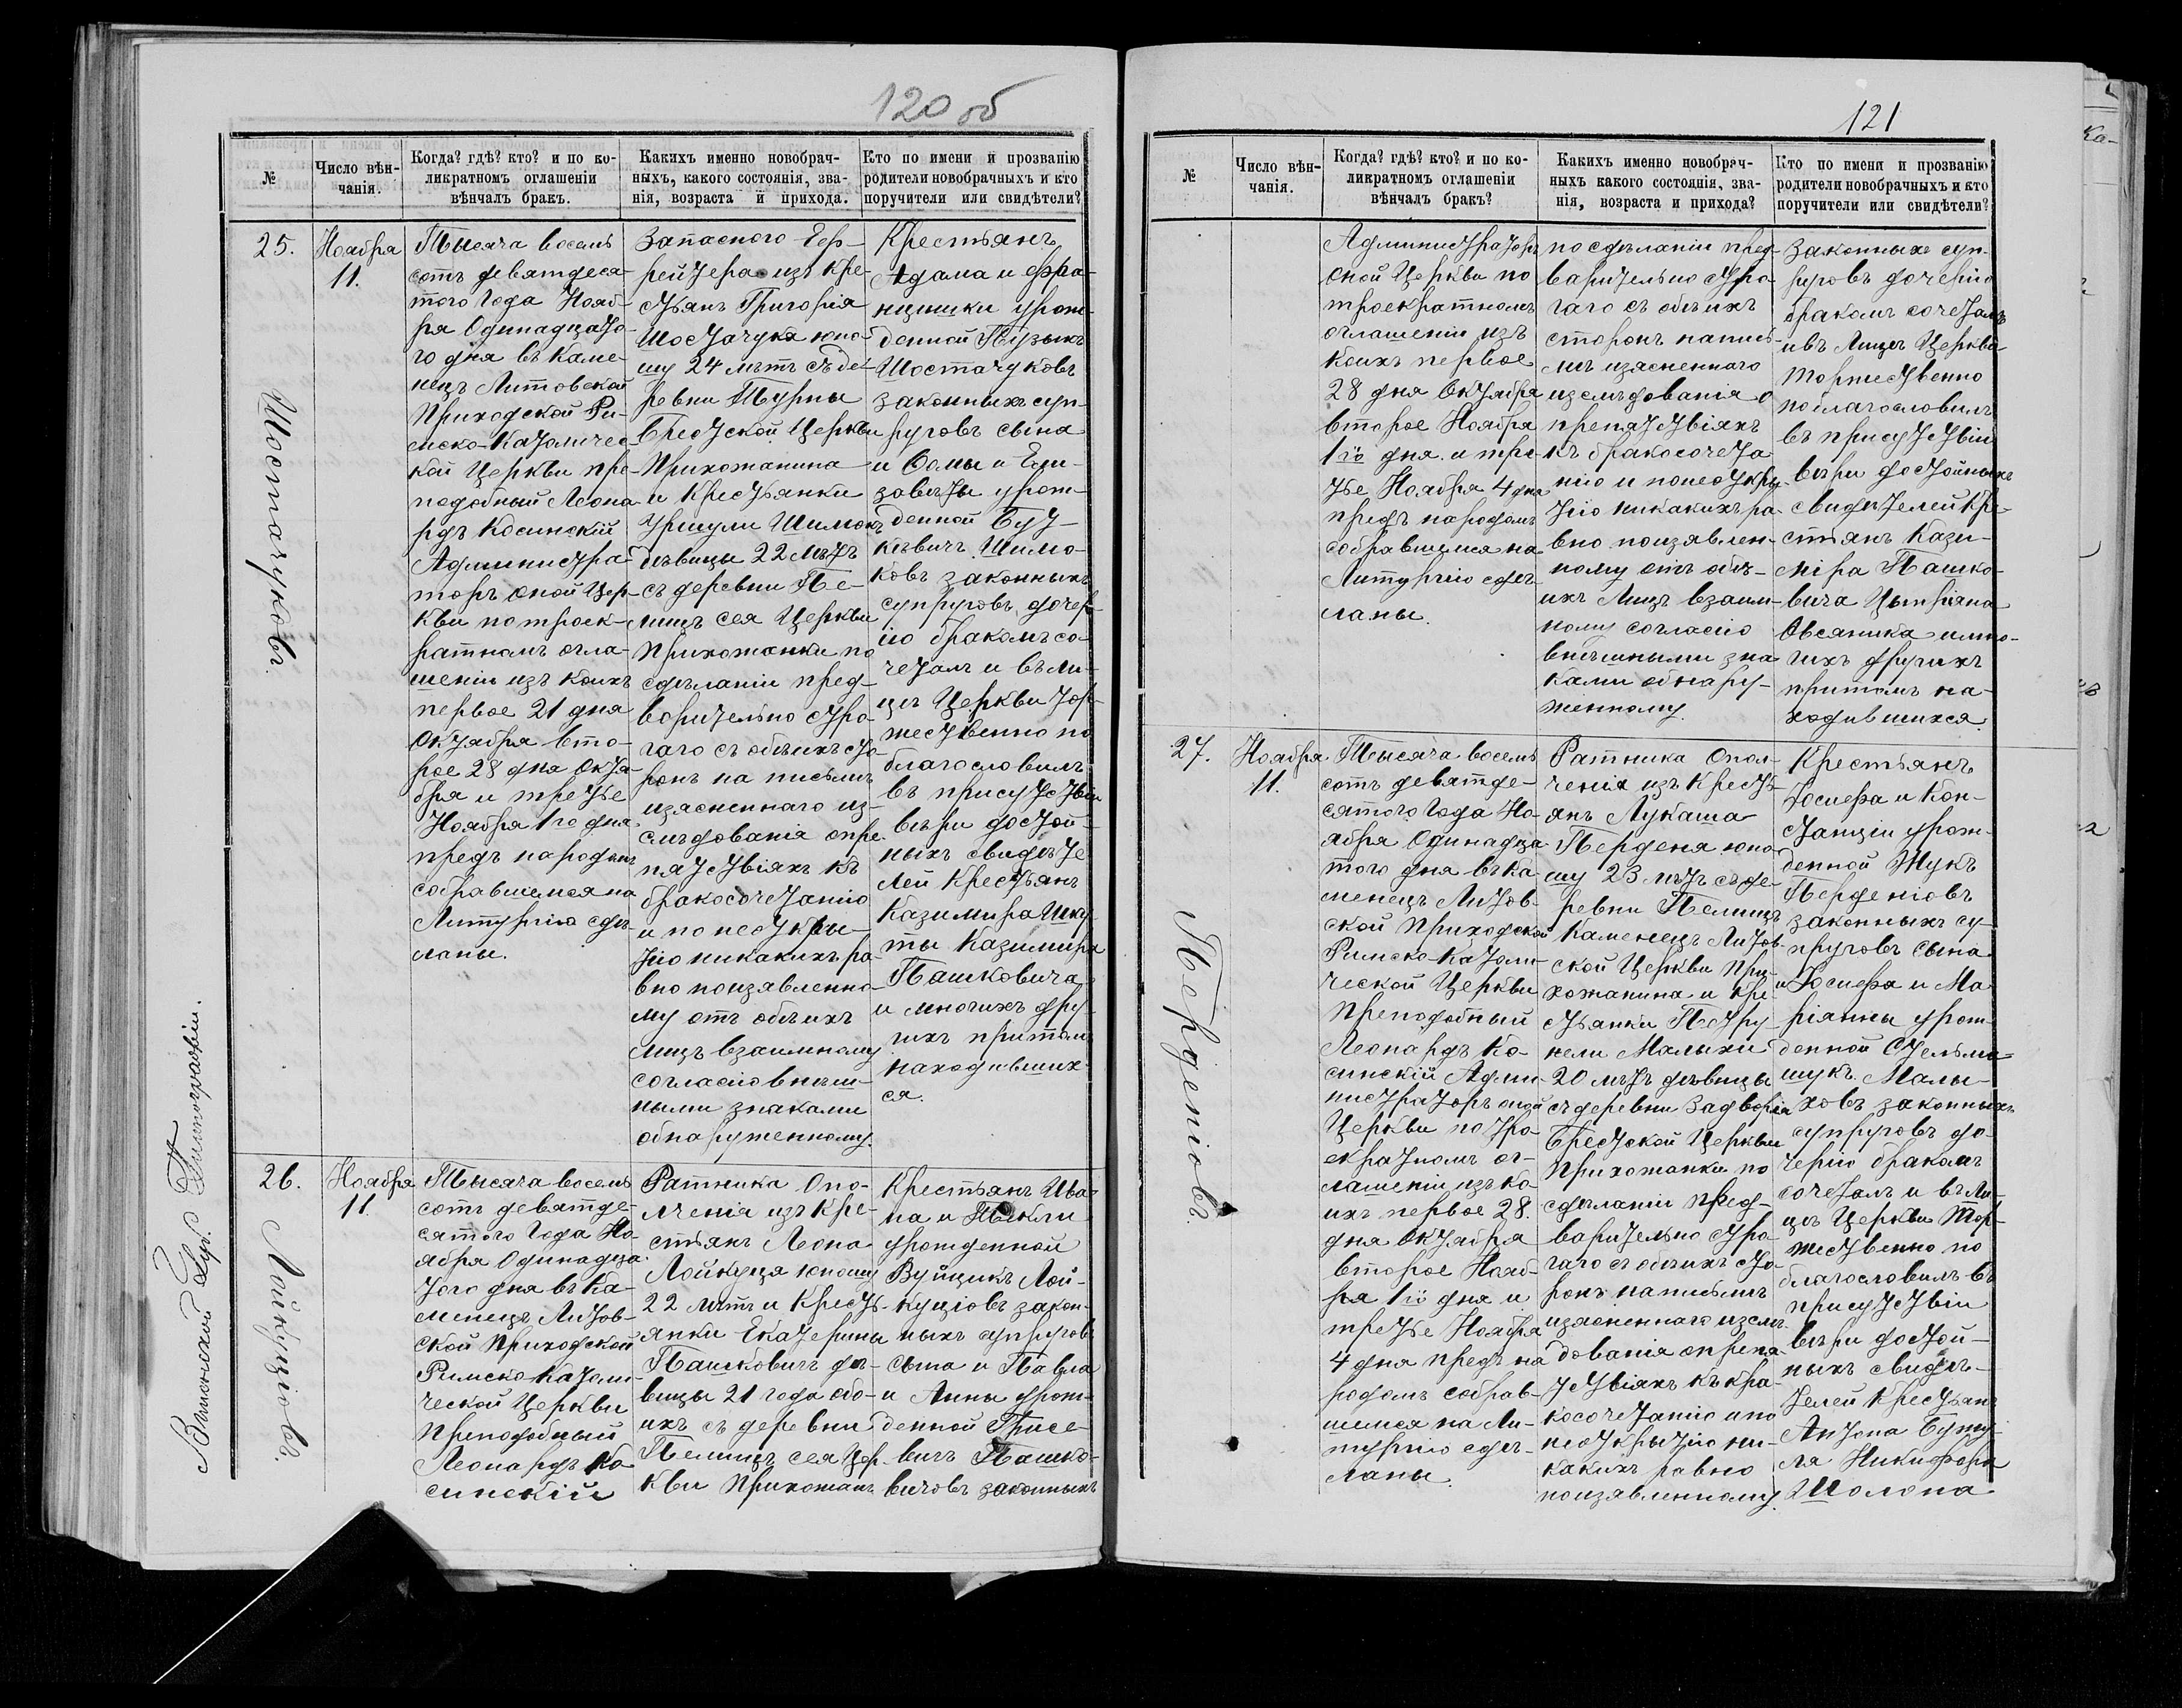 120 об
№
Число вѣн-
чанія.
Когда? гдѣ? кто? и по ко-
ликратномъ оглашеніи
вѣнчалъ бракъ.
Какихъ именно новобрач-
ныхъ, какого состоянія, зва-
нія, возраста и прихода.
Кто по имени и прозванію
родители новобрачныхъ и кто
поручители или свидѣтели?
25.
Шостачуковъ.
Ноября
11.
Тысяча восемь
сотъ девятдеся-
того года Нояб-
ря Одинадцато-
го дня въ Каме-
нецъ Литовской
Приходской Ри-
мско-Католичес-
кой Церкви пре-
подобный Леона-
рдъ Косинскій
Администра-
торъ оной Цер-
кви по троек-
ратномъ огла-
шеніи изъ коихъ
первое 21 дня
Октября вто-
рое 28 дня Октя-
бря и третье
Ноября 1го дня
предъ народомъ
собравшемся на
Литургію сдѣ-
ланы.
Запасного Еф-
рейтера изъ кре-
стьянъ Григорія
Шостачука юно-
шу 24 лѣтъ съ де-
ревни Турны
Брестской Церкви
Прихожанина
и Крестьянки
Уршули Шимокъ
дѣвицы 22 лѣтъ
съ деревни Пе-
лищъ сея Церкви
Прихожанки по
сдѣланіи пред-
варительно стро-
гаго съ обѣихъ сто-
ронъ на письмѣ
изясненнаго из-
слѣдованія о пре-
пятствіяхъ къ
бракосочетанію
и по неоткры-
тію никакихъ ра-
вно поизявленно-
му отъ обѣихъ
лицъ взаимному
согласію внѣш-
ными знаками
обнаруженному.
Крестьянъ
Адама и Фра-
нцишки урож-
денной Пузыкъ
Шостачуковъ
законныхъ суп-
руговъ сына
и Фомы и Ели-
заветы урож-
денной Бут-
кѣвичъ Шимо-
ковъ законныхъ
супруговъ дочер-
ію бракомъ со-
четалъ и въ ли-
цѣ Церкви тор-
жественно по
благословилъ
въ присутствіи
вѣри достой-
ныхъ свидѣте-
лей крестьянъ
Казимира Шку-
ты Казимира
Пашковича
и многихъ дру-
гихъ притомъ
находивших-
ся.
26.
Лойкуціовъ.
Ноября
11
Тысяча восемь
сотъ девятде-
сятого года Но-
ября Одинадца-
того дня въ Ка-
менецъ Литов-
ской Приходской
Римско Католи-
ческой Церкви
Преподобный
Леонардъ Ко-
синскій
Ратника Опо-
лченія изъ Кре-
стьянъ Леона
Лойкуця юношу
22 лѣтъ и Кресть-
янки Екатерины
Пашковичъ дѣ-
вицы 21 года обо-
ихъ съ деревни
Пелищъ сея Цер-
кви Прихожанъ
Крестьянъ Ива-
на и Теклы
урожденной
Вуйцикъ Лой-
куціовъ закон-
ныхъ супруговъ
сына и Павла
и Анны урож-
денной Грисе-
вичъ Пашко-
вичовъ законныхъ
121
№
Число вѣн-
чанія.
Когда? гдѣ? кто? и по ко-
ликратномъ оглашеніи
вѣнчалъ бракъ?
Какихъ именно новобрач-
ныхъ какого состоянія, зва-
нія, возраста и прихода?
Кто по имени и прозванію
родители новобрачныхъ и кто
поручители или свидѣтели?
Администраторъ
оной Церкви по
троекратномъ
оглашеніи изъ
коихъ первое
28 дня Октября
второе Ноября
1го дня и тре-
тье Ноября 4 дня
предъ народомъ
собравшемся на
Литургію сдѣ-
ланы.
по сдѣланіи пред-
варительно стро-
гаго съ обѣихъ
сторонъ на пись-
мѣ изясненнаго
изслѣдованія о
препятствіяхъ
къ бракосочета-
нію и по неоткры-
тію никакихъ ра-
вно поизявлен-
ному отъ обѣ-
ихъ лицъ взаим-
ному согласію
внѣшными зна-
ками обнару-
женному.
законныхъ суп-
руговъ дочерію
бракомъ сочеталъ
и въ лицѣ Церкви
торжественно
поблагословилъ
въ присутствіи
вѣри достойныхъ
свидѣтелей кре-
стьянъ Кази-
міра Пашко-
вича Цыпріяна
Овсяника и мно-
гихъ другихъ
притомъ на-
ходившихся.
27.
Перденіовъ.
Ноября
11.
Тысяча восемь
сотъ девятде-
сятого года Но-
ября Одинадца-
того дня въ Ка-
менецъ Литов-
ской Приходской
Римско-Католи-
ческой Церкви
Преподобный
Леонардъ Ко-
синскій Адми-
нистраторъ оной
Церкви по тро-
екратномъ ог-
лашеніи изъ ко-
ихъ первое 28.
дня Октября
второе Нояб-
ря 1го дня и
третье Ноября
4 дня предъ на-
родомъ собрав-
шемся на Ли-
тургію сдѣ-
ланы.
Ратника Опол-
ченія изъ Кресть-
янъ Лукаша
Перденя юно-
шу 23 лѣтъ съ де-
ревни Пелищъ
Каменецъ Литов-
ской Церкви При-
хожанина и Кре-
стьянки Петру-
нели Малыхи
20 лѣтъ дѣвицы
съ деревни Задворія
Брестской Церкви
Прихожанки по
сдѣланіи пред-
варительно стро-
гаго съ обѣихъ сто-
ронъ на письмѣ
изясненнаго изслѣ-
дованія о препя-
тствіяхъ къ бра-
косочетанію и по
неоткрытію ни-
какихъ равно
поизявленному
Крестьянъ
Юсифа и Кон-
станціи урож-
денной Жукъ
Перденіовъ
законныхъ су-
пруговъ сына
и Юсифа и Ма-
ріянны урож-
денной Стельма-
шукъ Малы-
ховъ законныхъ
супруговъ до-
черію бракомъ
сочеталъ и въ ли-
цѣ Церкви Тор-
жественно по
благословилъ въ
присутствіи
вѣри достой-
ныхъ свидѣ-
телей Крестьянъ
Антона
Никифора
Шолопа